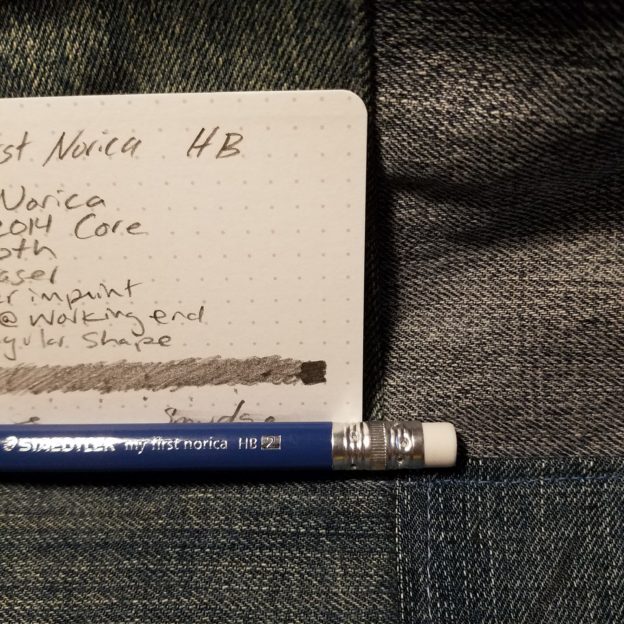 st Norica HB
Norica
2014 Core
oth
asel
r imprint
@ working end
gular shape
Smudge
STAEDTLER my first norica HB 2